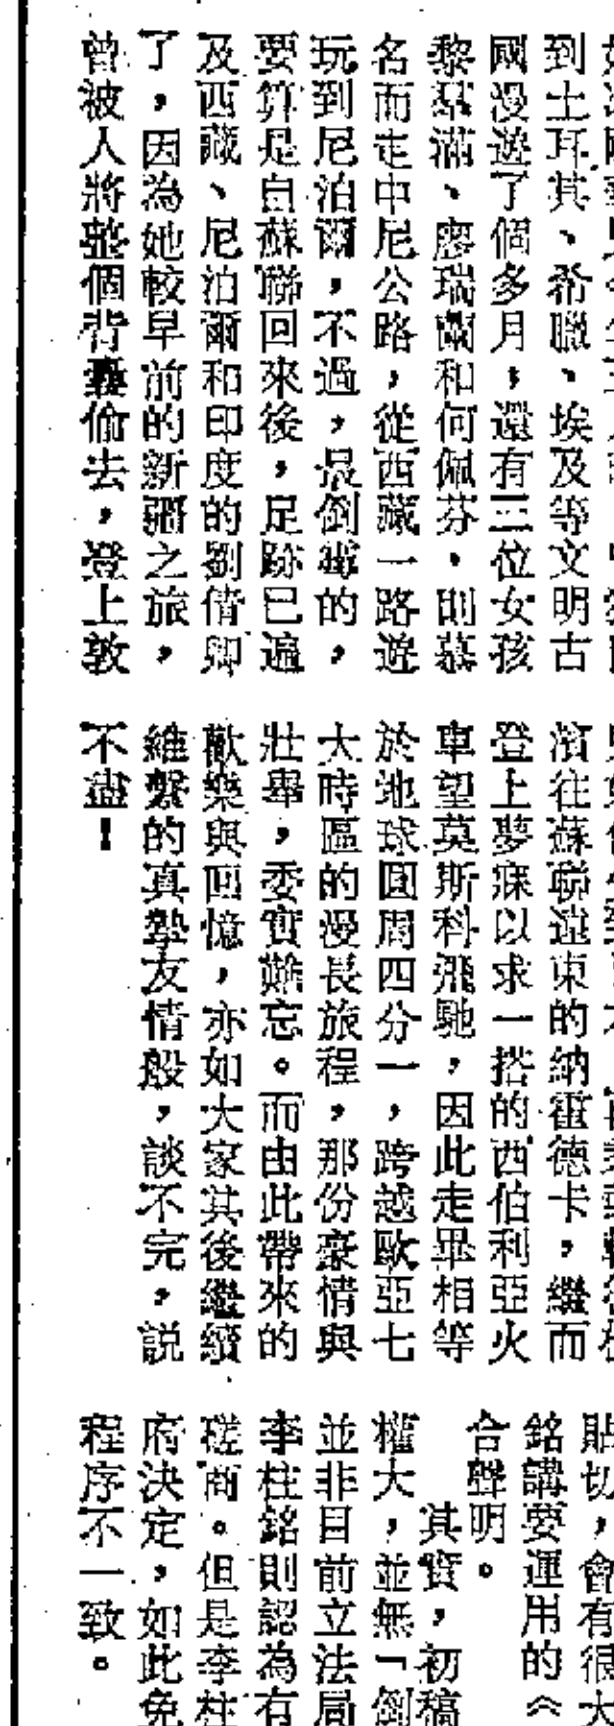 到土耳其、希臘、埃及等文明古
國漫遊了個多月，還有三位女孩
黎星滿、廖瑞蘭和何佩芬，則慕
名而走中尼公路，從西藏一路遊
玩到尼泊爾，不過，最倒霉的，
要算是自蘇聯回來後，足跡已遍
及西藏、尼泊爾和印度的劉倩卿
了，因為她較早前的新疆之旅，
曾被人將整個背囊偷去，登上敦
濱往蘇聯遠東的納霍德卡，繼而
登上夢寐以求一搭的西伯利亞火
車望莫斯科飛馳，因此走畢相等
於地球圓周四分一，跨越歐亞七
大時區的漫長旅程，那份豪情與
壯舉，委實難忘。而由此帶來的
歡樂與回憶，亦如大家其後繼續
維繫的真摯友情般，談不完，説
不盡！
貼切，會有很大
銘講要運用的《
合聲明。
其實，初稿
權大，並無「倒
並非目前立法局
李柱銘則認為有
磋商。但是李柱
府決定，如此免
程序不一致。